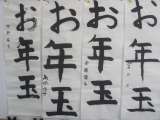 お年玉
お年玉
お年玉
お年玉